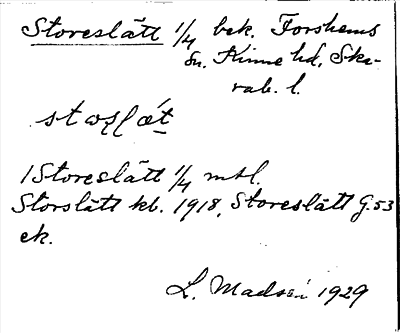 Storeslätt 1/4 bek. Forshems
sn. Kinne hd, Ska-
rab. l.
1 Storeslätt 1/4 mtl.
Storslätt kb. 1918, Storeslätt G.53
ek.
L. Madsén 1929